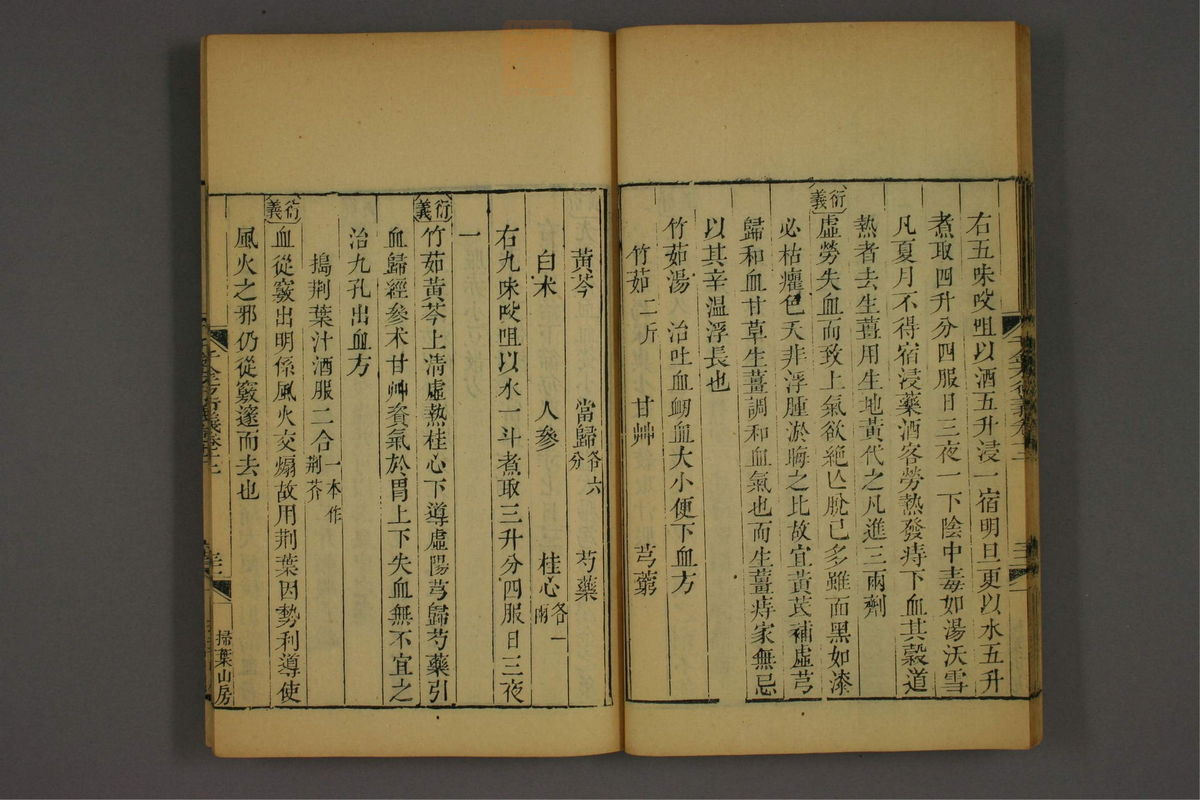 右五味㕮咀以酒五升浸一宿明旦更以水五升
煮取四升分四服日三夜一下陰中毒如湯沃雪
凡夏月不得宿浸藥酒客勞熱發痔下血其穀道
熱者去生薑用生地黃代之凡進三兩劑
衍義
虛勞失血而致上氣欲絶亾脫已多雖面黑如漆
必枯癯色夭非浮腫淤晦之比故宜黃芪補虛芎
歸和血甘草生薑調和血氣也而生薑痔家無忌
以其辛温浮長也
竹茹湯 治吐血衂血大小便下血方
竹茹二斤 甘艸 芎藭
黃芩 當歸各六分 芍藥
白朮 人參 桂心各一兩
右九味㕮咀以水一斗煮取三升分四服日三夜
一
衍義
竹茹黃芩上清虛熱桂心下導虛陽芎歸芍藥引
血歸經參朮甘艸資氣於胃上下失血無不宜之
治九孔出血方
搗荆葉汁酒服二合一本作荆芥
衍義
血從竅出明係風火交煽故用荆葉因勢利導使
風火之邪仍從竅邃而去也
掃葉山房